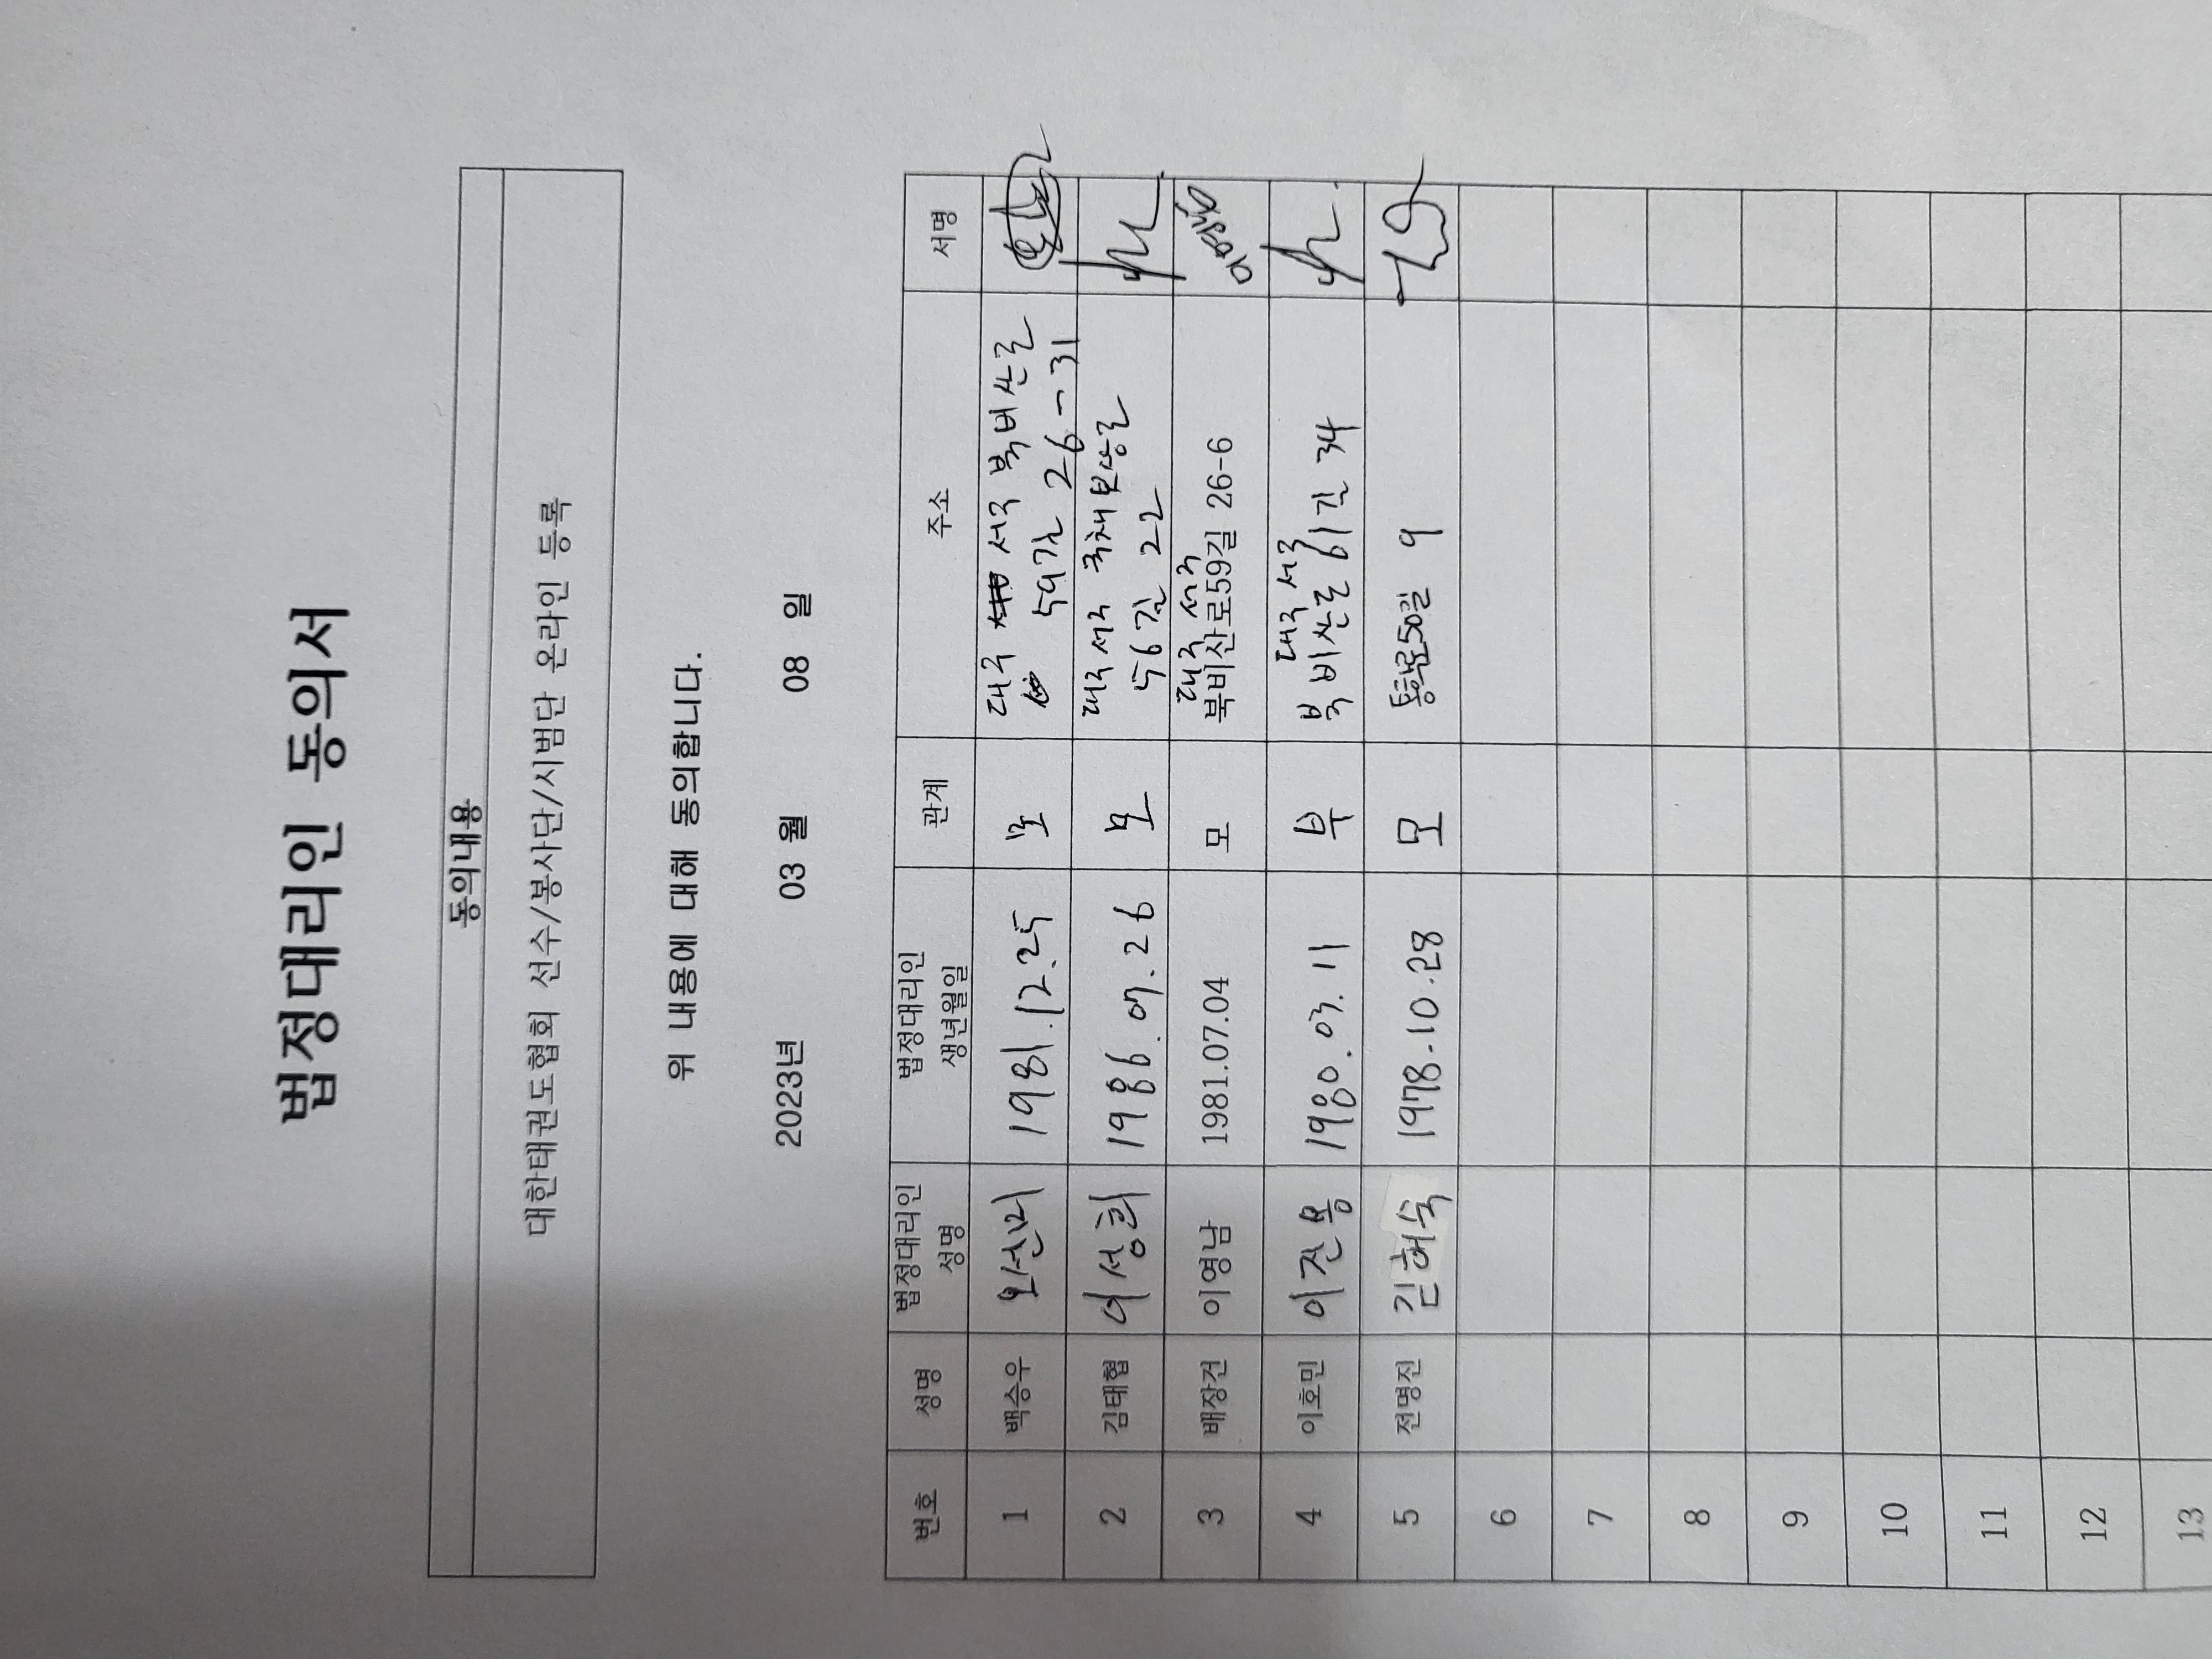 법정대리인 동의서
동의내용
대한태권도협회 선수/봉사단/시범단 온라인 등록
위 내용에 대해 동의합니다.
2023년 03 월 08 일
번호 성명 법정대리인 성명 법정대리인 생년월일 관계 주소 서명
1 백승우 1981.12.25 모 대구 서구 북비산로
59길 26-31
2 김태협 이성희 1986.07.26 모 대구 서구 국채보상로
56길 22
3 배장건 이영남 1981.07.04 모 대구 서구
북비산로59길 26-6 이영남
4 이호민 이진용 1980.03.11 부 대구 서구
북비산로 61길 34
5 전명진 김해숙 1978.10.28 모 50길 9
6
7
8
9
10
11
12
13